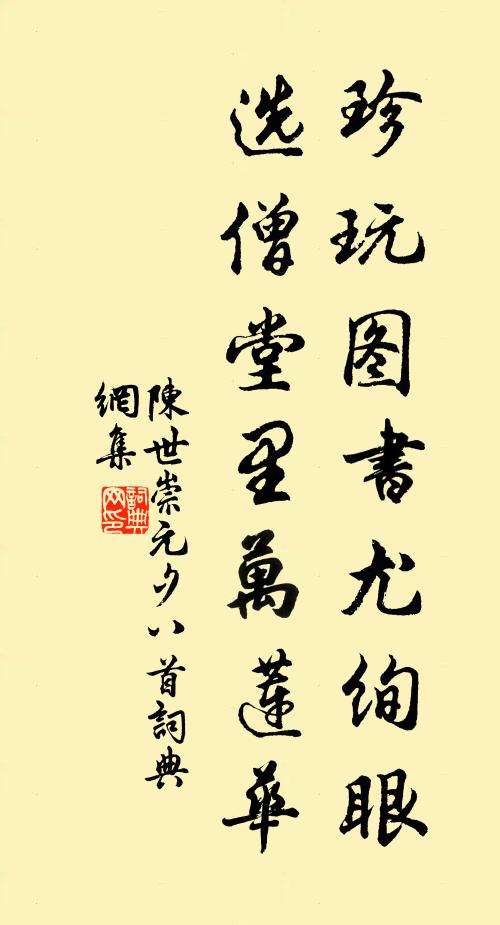 珍玩图書尤绚眼
选僧堂里萬蓮華
陳世崇元夕八首詞典
網集
詞典網印